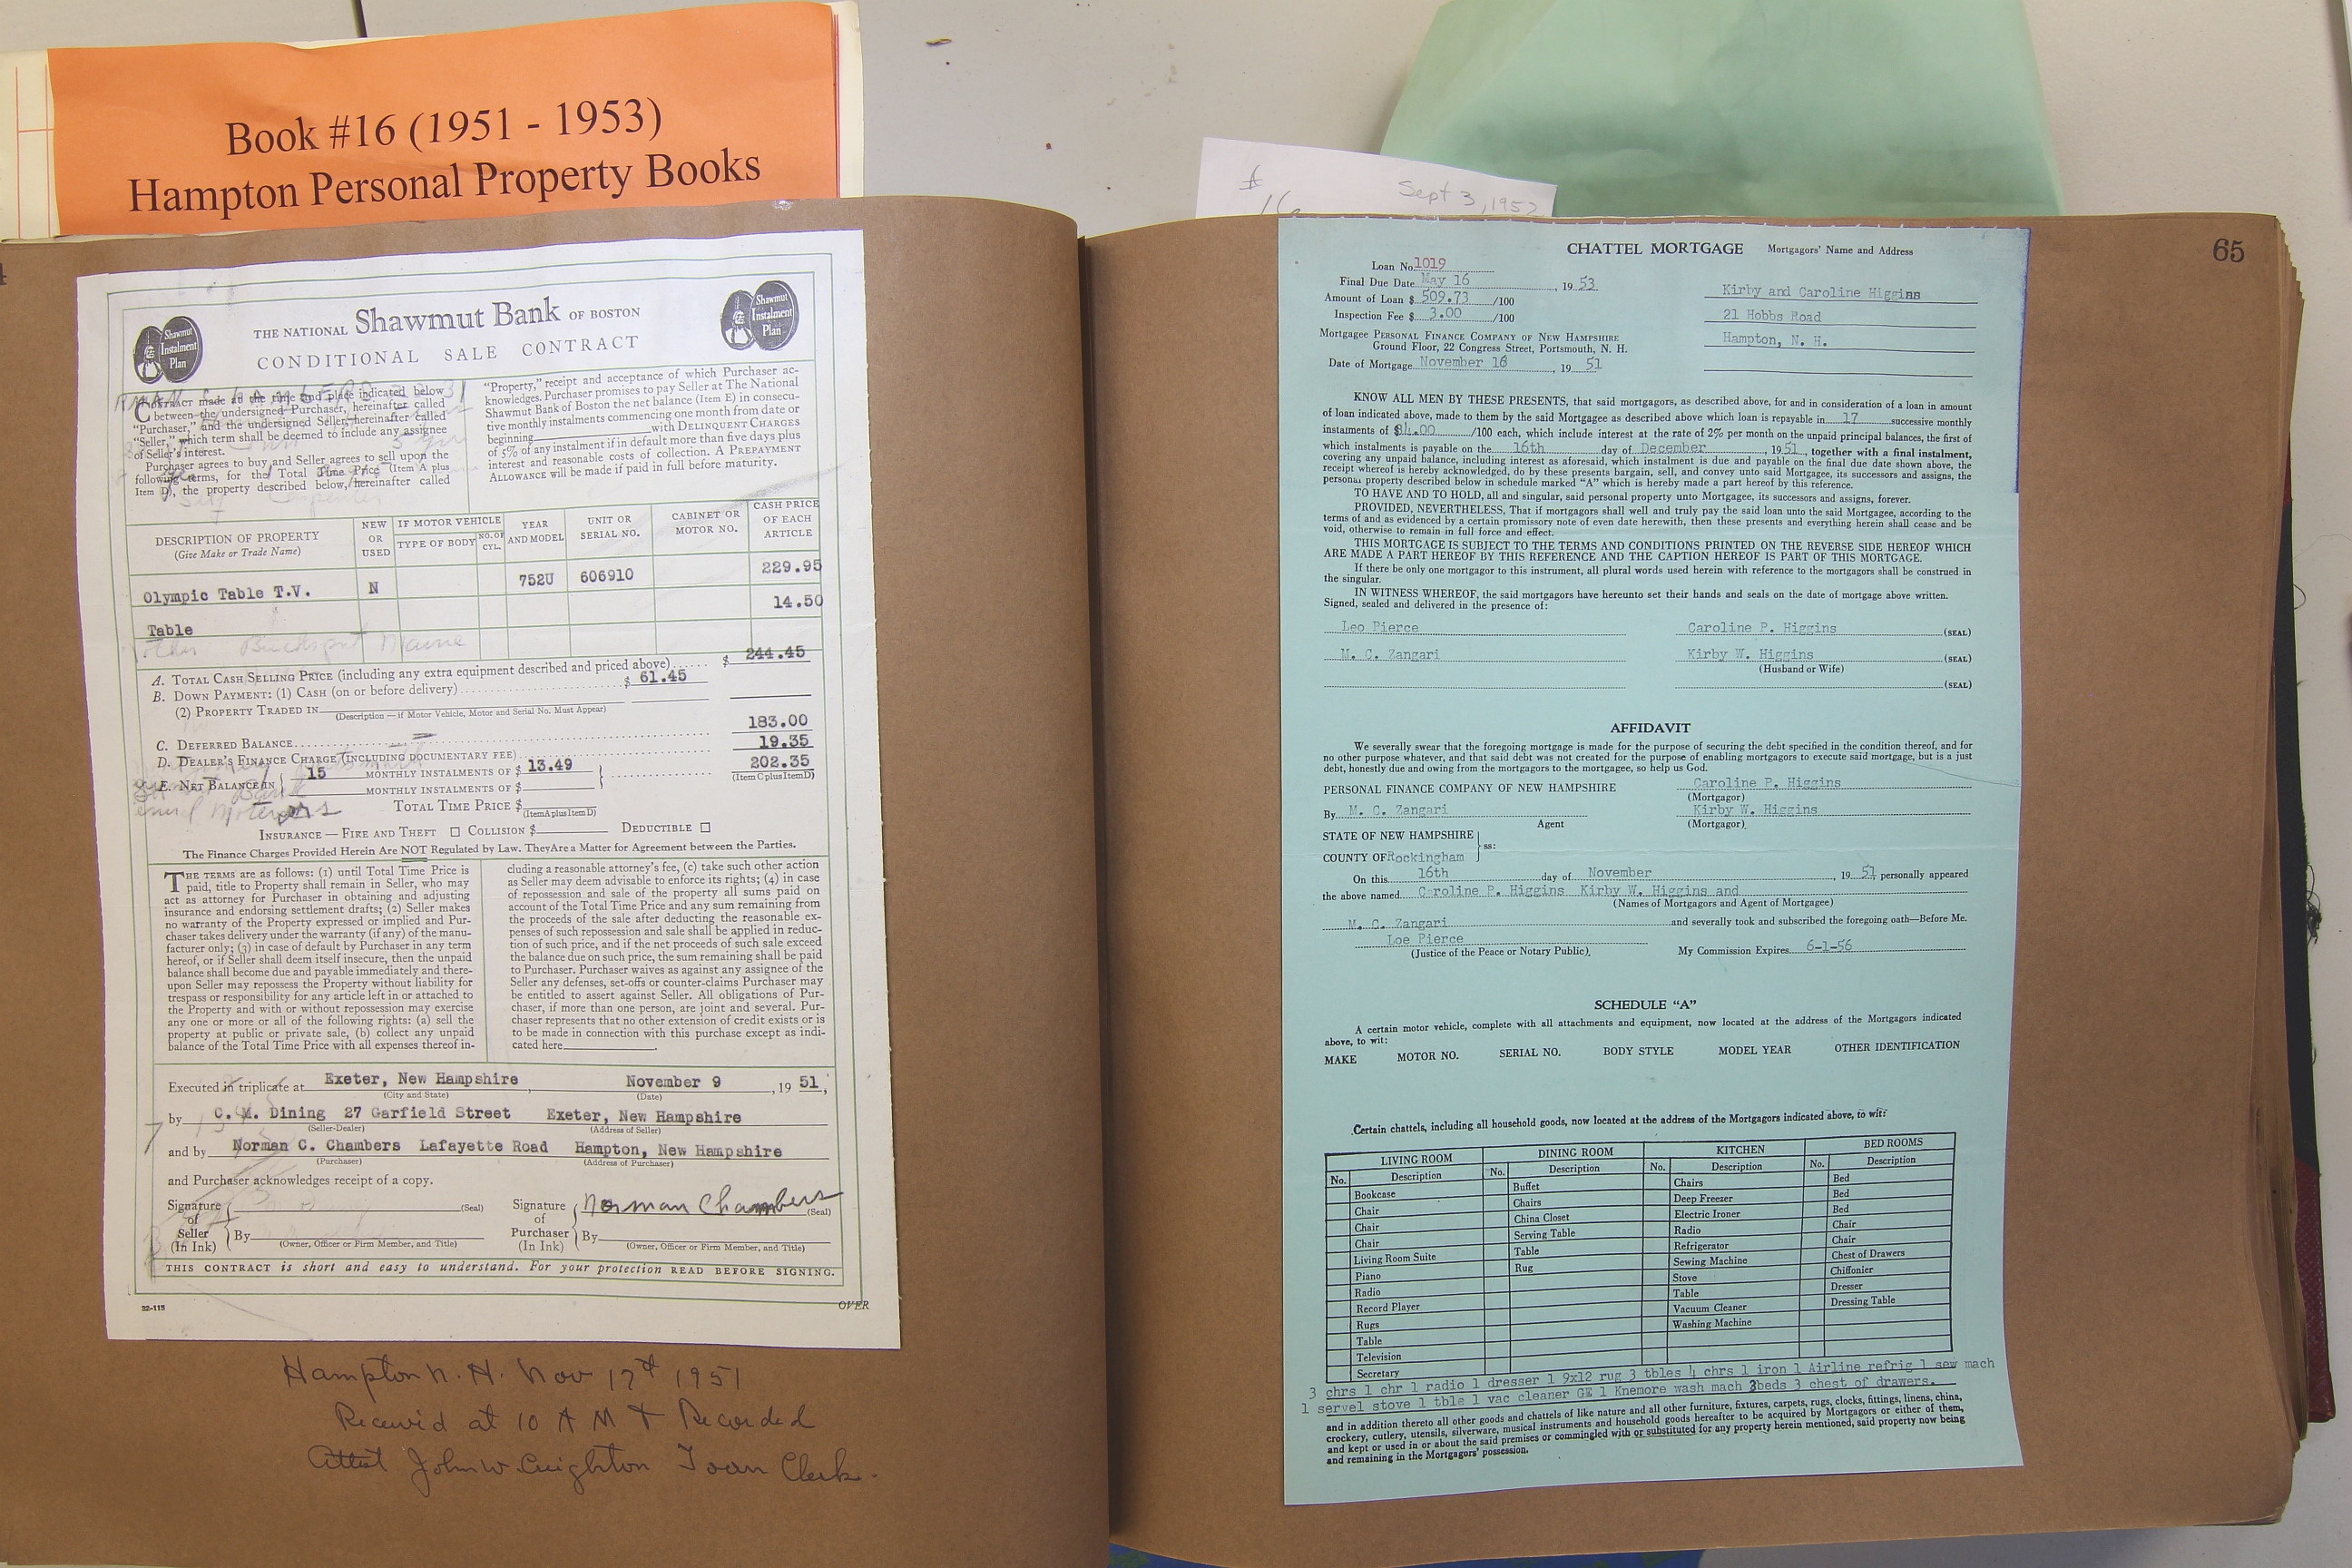 Book #16 (1951 - 1953)
Hampton Personal Property Books
Sept 3, 1952
65
Shawmut
Instalment
Plan
THE NATIONAL Shawmut Bank OF BOSTON
CONDITIONAL SALE CONTRACT
Shawmut
Instalment
Plan
CONTRACT made at the time and place indicated below
between the undersigned Purchaser, hereinafter called
"Purchaser," and the undersigned Seller, hereinafter called
"Seller," which term shall be deemed to include any assignee
of Seller's interest.
Purchaser agrees to buy and Seller agrees to sell upon the
following terms, for the Total Time Price (Item A plus
Item D), the property described below, hereinafter called
"Property," receipt and acceptance of which Purchaser ac-
knowledges. Purchaser promises to pay Seller at The National
Shawmut Bank of Boston the net balance (Item E) in consecu-
tive monthly instalments commencing one month from date or
beginning with DELINQUENT CHARGES
of 5% of any instalment if in default more than five days plus
interest and reasonable costs of collection. A PREPAYMENT
ALLOWANCE will be made if paid in full before maturity.
DESCRIPTION OF PROPERTY
(Give Make or Trade Name)
NEW
OR
USED
IF MOTOR VEHICLE
TYPE OF BODY
NO. OF
CYL.
YEAR
AND MODEL
UNIT OR
SERIAL NO.
CABINET OR
MOTOR NO.
CASH PRICE
OF EACH
ARTICLE
Olympic Table T.V. N 752U 606910 229.95
Table 14.50
Bucksport Maine
A. TOTAL CASH SELLING PRICE (including any extra equipment described and priced above)...... $ 244.45
B. DOWN PAYMENT: (1) CASH (on or before delivery) $ 61.45
(2) PROPERTY TRADED IN
(Description — if Motor Vehicle, Motor and Serial No. Must Appear)
C. DEFERRED BALANCE 183.00
D. DEALER'S FINANCE CHARGE (INCLUDING DOCUMENTARY FEE) 19.35
E. NET BALANCE IN { 15 MONTHLY INSTALMENTS OF $ 13.49 } 202.35
MONTHLY INSTALMENTS OF $ (Item C plus Item D)
TOTAL TIME PRICE $
(Item A plus Item D)
INSURANCE — FIRE AND THEFT ☐ COLLISION $ DEDUCTIBLE ☐
The Finance Charges Provided Herein Are NOT Regulated by Law. They Are a Matter for Agreement between the Parties.
THE TERMS are as follows: (1) until Total Time Price is
paid, title to Property shall remain in Seller, who may
act as attorney for Purchaser in obtaining and adjusting
insurance and endorsing settlement drafts; (2) Seller makes
no warranty of Property expressed or implied and Pur-
chaser takes delivery under the warranty (if any) of the manu-
facturer only; (3) in case of default by Purchaser in any term
hereof, or if Seller shall deem itself insecure, then the unpaid
balance shall become due and payable immediately and there-
upon Seller may repossess the Property without liability for
trespass or responsibility for any article left in or attached to
the Property and with or without repossession may exercise
any one or more or all of the following rights: (a) sell the
property at public or private sale, (b) collect any unpaid
balance of the Total Time Price with all expenses thereof in-
cluding a reasonable attorney's fee, (c) take such other action
as Seller may deem advisable to enforce its rights; (4) in case
of repossession and sale of the property all sums paid on
account of the Total Time Price and any sum remaining from
the proceeds of the sale after deducting the reasonable ex-
penses of such repossession and sale shall be applied in reduc-
tion of such price, and if the net proceeds of such sale exceed
the balance due on such price, the sum remaining shall be paid
to Purchaser. Purchaser waives as against any assignee of the
Seller any defenses, set-offs or counter-claims Purchaser may
be entitled to assert against Seller. All obligations of Pur-
chaser, if more than one person, are joint and several. Pur-
chaser represents that no other extension of credit exists or is
to be made in connection with this purchase except as indi-
cated here
Executed in triplicate at Exeter, New Hampshire, November 9, 19 51,
(City and State) (Date)
by C. M. Dining 27 Garfield Street Exeter, New Hampshire
(Seller-Dealer) (Address of Seller)
and by Norman C. Chambers Lafayette Road Hampton, New Hampshire
(Purchaser) (Address of Purchaser)
and Purchaser acknowledges receipt of a copy.
Signature of Seller (In Ink) (Seal)
By
(Owner, Officer or Firm Member, and Title)
Signature of Purchaser (In Ink) Norman Chambers (Seal)
By
(Owner, Officer or Firm Member, and Title)
THIS CONTRACT is short and easy to understand. For your protection READ BEFORE SIGNING.
22-115
OVER
Hampton N. H. Nov 17th 1951
Received at 10 A M & Recorded
Attest John W. Creighton Town Clerk.
CHATTEL MORTGAGE Mortgagors' Name and Address
Loan No. 1019
Final Due Date May 16, 19 53
Amount of Loan $ 509.73 /100
Inspection Fee $ 3.00 /100
Mortgagee PERSONAL FINANCE COMPANY OF NEW HAMPSHIRE
Ground Floor, 22 Congress Street, Portsmouth, N. H.
Date of Mortgage November 16, 19 51
Kirby and Caroline Higgins
21 Hobbs Road
Hampton, N. H.
KNOW ALL MEN BY THESE PRESENTS, that said mortgagors, as described above, for and in consideration of a loan in amount
of loan indicated above, made to them by the said Mortgagee as described above which loan is repayable in 17 successive monthly
instalments of $ /100 each, which include interest at the rate of 2% per month on the unpaid principal balances, the first of
which instalments is payable on the 16th day of December, 19 51, together with a final instalment,
covering any unpaid balance, including interest as aforesaid, which instalment is due and payable on the final due date shown above, the
receipt whereof is hereby acknowledged, do by these presents bargain, sell, and convey unto said Mortgagee, its successors and assigns, the
personal property described below in schedule marked "A" which is hereby made a part hereof by this reference.
TO HAVE AND TO HOLD, all and singular, said personal property unto Mortgagee, its successors and assigns, forever.
PROVIDED, NEVERTHELESS, That if mortgagors shall well and truly pay the said loan unto the said Mortgagee, according to the
terms of and as evidenced by a certain promissory note of even date herewith, then these presents and everything herein shall cease and be
void, otherwise to remain in full force and effect.
THIS MORTGAGE IS SUBJECT TO THE TERMS AND CONDITIONS PRINTED ON THE REVERSE SIDE HEREOF WHICH
ARE MADE A PART HEREOF BY THIS REFERENCE AND THE CAPTION HEREOF IS PART OF THIS MORTGAGE.
If there be only one mortgagor to this instrument, all plural words used herein with reference to the mortgagors shall be construed in
the singular.
IN WITNESS WHEREOF, the said mortgagors have hereunto set their hands and seals on the date of mortgage above written.
Signed, sealed and delivered in the presence of:
Leo Pierce Caroline P. Higgins (SEAL)
M. C. Zangari Kirby W. Higgins (SEAL)
(Husband or Wife)
(SEAL)
AFFIDAVIT
We severally swear that the foregoing mortgage is made for the purpose of securing the debt specified in the condition thereof, and for
no other purpose whatever, and that said debt was not created for the purpose of enabling mortgagors to execute said mortgage, but is a just
debt, honestly due and owing from the mortgagors to the mortgagee, so help us God.
PERSONAL FINANCE COMPANY OF NEW HAMPSHIRE Caroline P. Higgins
(Mortgagor)
By M. C. Zangari Kirby W. Higgins
Agent (Mortgagor)
STATE OF NEW HAMPSHIRE
ss:
COUNTY OF Rockingham
On this 16th day of November, 19 51 personally appeared
the above named Caroline P. Higgins Kirby W. Higgins and
(Names of Mortgagors and Agent of Mortgagee)
M. C. Zangari and severally took and subscribed the foregoing oath—Before Me.
Loe Pierce
(Justice of the Peace or Notary Public) My Commission Expires 6-1-56
SCHEDULE "A"
A certain motor vehicle, complete with all attachments and equipment, now located at the address of the Mortgagors indicated
above, to wit:
MAKE MOTOR NO. SERIAL NO. BODY STYLE MODEL YEAR OTHER IDENTIFICATION
Certain chattels, including all household goods, now located at the address of the Mortgagors indicated above, to wit:
LIVING ROOM DINING ROOM KITCHEN BED ROOMS
No. Description No. Description No. Description No. Description
Bookcase Buffet Chairs Bed
Chair Chairs Deep Freezer Bed
Chair China Closet Electric Ironer Bed
Chair Serving Table Radio Chair
Living Room Suite Table Refrigerator Chair
Piano Rug Sewing Machine Chest of Drawers
Radio Stove Chiffonier
Record Player Table Dresser
Rugs Vacuum Cleaner Dressing Table
Table Washing Machine
Television
Secretary
3 chrs 1 chr 1 radio 1 dresser 1 9x12 rug 3 tbles 4 chrs 1 iron 1 Airline refrig 1 sew mach
1 servel stove 1 tble 1 vac cleaner GE 1 Knemore wash mach 3beds 3 chest of drawers.
and in addition thereto all other goods and chattels of like nature and all other furniture, fixtures, carpets, rugs, clocks, fittings, linens, china,
crockery, cutlery, utensils, silverware, musical instruments and household goods hereafter to be acquired by Mortgagors or either of them,
and kept or used in or about the said premises or commingled with or substituted for any property herein mentioned, said property now being
and remaining in the Mortgagors' possession.